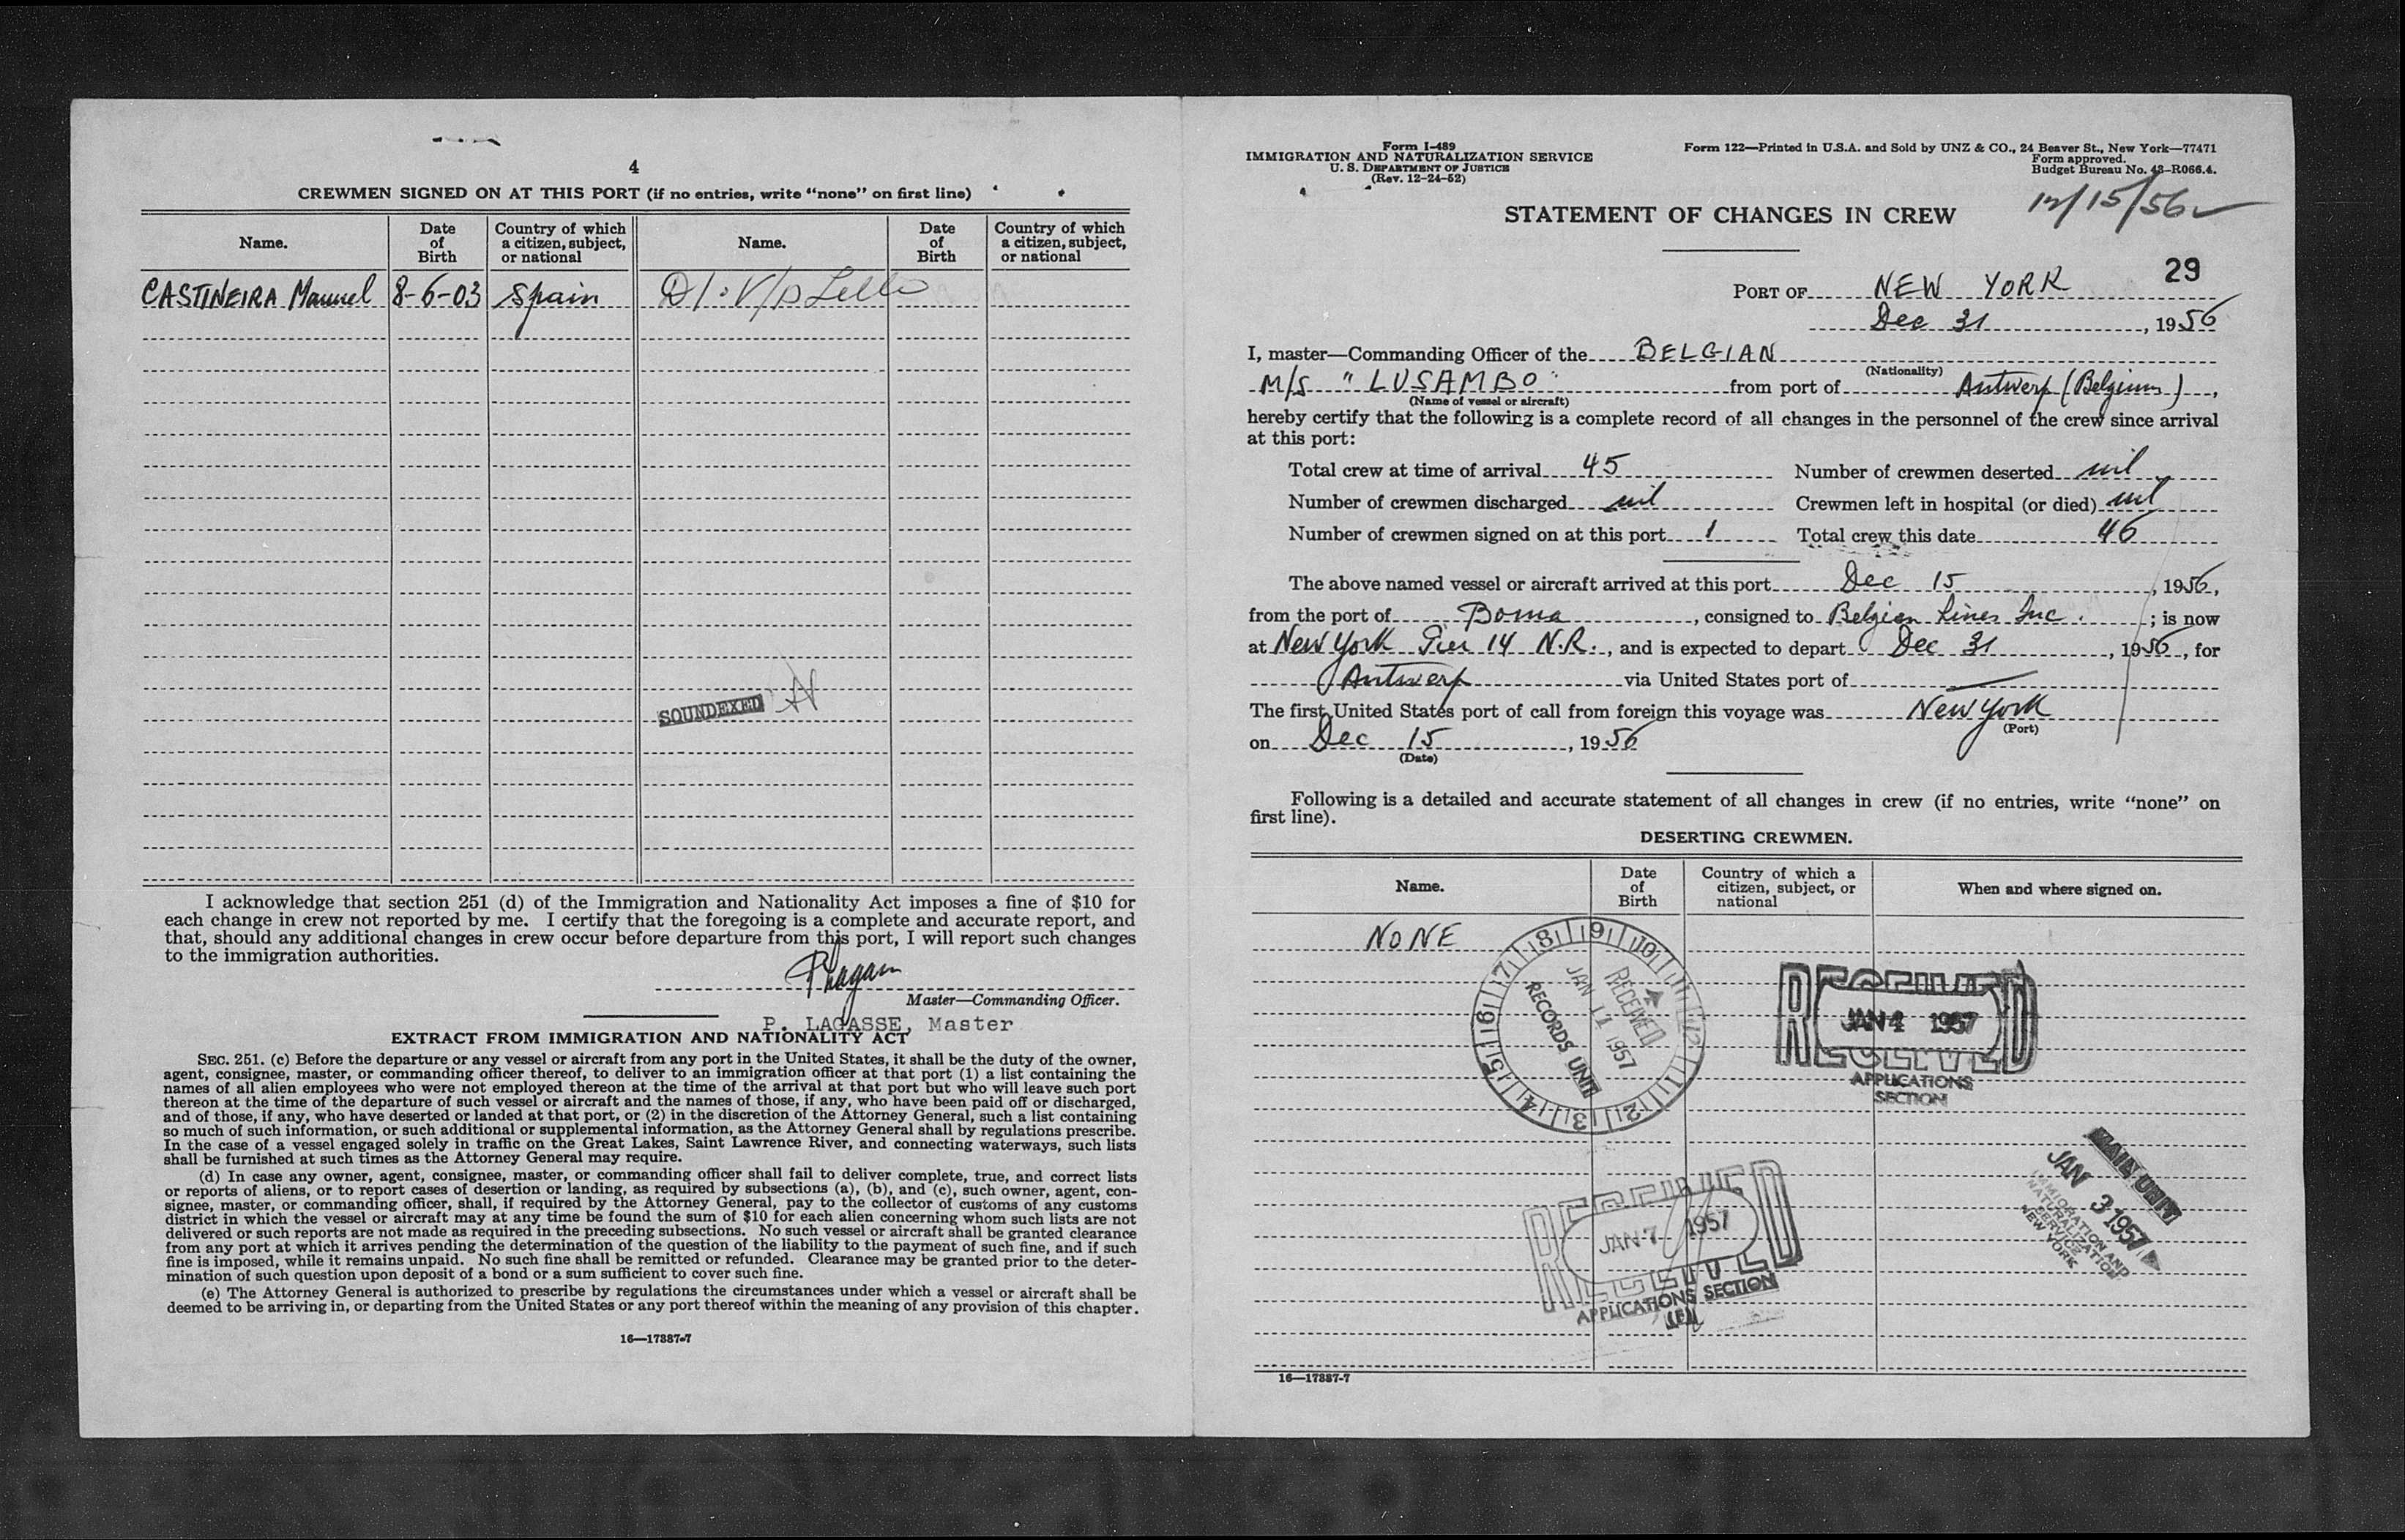 4
CREWMEN SIGNED ON AT THIS PORT (if no entries, write “none” on first line)
Name. Date of Birth Country of which a citizen, subject, or national Name. Date of Birth Country of which a citizen, subject, or national
CASTINEIRA Manuel 8-6-03 Spain
SOUNDEXED
I acknowledge that section 251 (d) of the Immigration and Nationality Act imposes a fine of $10 for
each change in crew not reported by me. I certify that the foregoing is a complete and accurate report, and
that, should any additional changes in crew occur before departure from this port, I will report such changes
to the immigration authorities.
Master—Commanding Officer.
P. LAGASSE, Master
EXTRACT FROM IMMIGRATION AND NATIONALITY ACT
SEC. 251. (c) Before the departure or any vessel or aircraft from any port in the United States, it shall be the duty of the owner,
agent, consignee, master, or commanding officer thereof, to deliver to an immigration officer at that port (1) a list containing the
names of all alien employees who were not employed thereon at the time of the arrival at that port but who will leave such port
thereon at the time of the departure of such vessel or aircraft and the names of those, if any, who have been paid off or discharged,
and of those, if any, who have deserted or landed at that port, or (2) in the discretion of the Attorney General, such a list containing
so much of such information, or such additional or supplemental information, as the Attorney General shall by regulations prescribe.
In the case of a vessel engaged solely in traffic on the Great Lakes, Saint Lawrence River, and connecting waterways, such lists
shall be furnished at such times as the Attorney General may require.
(d) In case any owner, agent, consignee, master, or commanding officer shall fail to deliver complete, true, and correct lists
or reports of aliens, or to report cases of desertion or landing, as required by subsections (a), (b), and (c), such owner, agent, con-
signee, master, or commanding officer, shall, if required by the Attorney General, pay to the collector of customs of any customs
district in which the vessel or aircraft may at any time be found the sum of $10 for each alien concerning whom such lists are not
delivered or such reports are not made as required in the preceding subsections. No such vessel or aircraft shall be granted clearance
from any port at which it arrives pending the determination of the question of the liability to the payment of such fine, and if such
fine is imposed, while it remains unpaid. No such fine shall be remitted or refunded. Clearance may be granted prior to the deter-
mination of such question upon deposit of a bond or a sum sufficient to cover such fine.
(e) The Attorney General is authorized to prescribe by regulations the circumstances under which a vessel or aircraft shall be
deemed to be arriving in, or departing from the United States or any port thereof within the meaning of any provision of this chapter.
16—17887-7
Form I-489
IMMIGRATION AND NATURALIZATION SERVICE
U. S. DEPARTMENT OF JUSTICE
(Rev. 12-24-52)
Form 122—Printed in U.S.A. and Sold by UNZ & CO., 24 Beaver St., New York—77471
Form approved.
Budget Bureau No. 43-R066.4.
12/15/56
STATEMENT OF CHANGES IN CREW
29
PORT OF NEW YORK
Dec 31, 1956
I, master—Commanding Officer of the BELGIAN
(Nationality)
M/S "LUSAMBO" from port of Antwerp (Belgium),
(Name of vessel or aircraft)
hereby certify that the following is a complete record of all changes in the personnel of the crew since arrival
at this port:
Total crew at time of arrival 45 Number of crewmen deserted nil
Number of crewmen discharged nil Crewmen left in hospital (or died) nil
Number of crewmen signed on at this port 1 Total crew this date 46
The above named vessel or aircraft arrived at this port Dec 15, 1956,
from the port of Boma, consigned to Belgian Lines Inc.; is now
at New York Pier 14 N.R., and is expected to depart Dec 31, 1956, for
Antwerp via United States port of —
The first United States port of call from foreign this voyage was New York
(Port)
on Dec 15, 1956
(Date)
Following is a detailed and accurate statement of all changes in crew (if no entries, write “none” on
first line).
DESERTING CREWMEN.
Name. Date of Birth Country of which a citizen, subject, or national When and where signed on.
NONE
8 9 10 11 12 1 2 3 4 5 6 7
RECEIVED
JAN 14 1957
RECORDS UNIT
RECEIVED
JAN 4 1957
RECEIVED
APPLICATIONS
SECTION
MAIL UNIT
JAN 3 1957
IMMIGRATION AND
NATURALIZATION
SERVICE
NEW YORK
RECEIVED
JAN 7 1957
RECEIVED
APPLICATIONS SECTION
16—17887-7